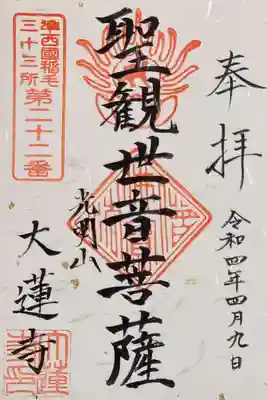 奉拝
令和四年四月九日
聖観世音菩薩
光明山
大蓮寺
準西國稲毛
三十三所
第二十二番